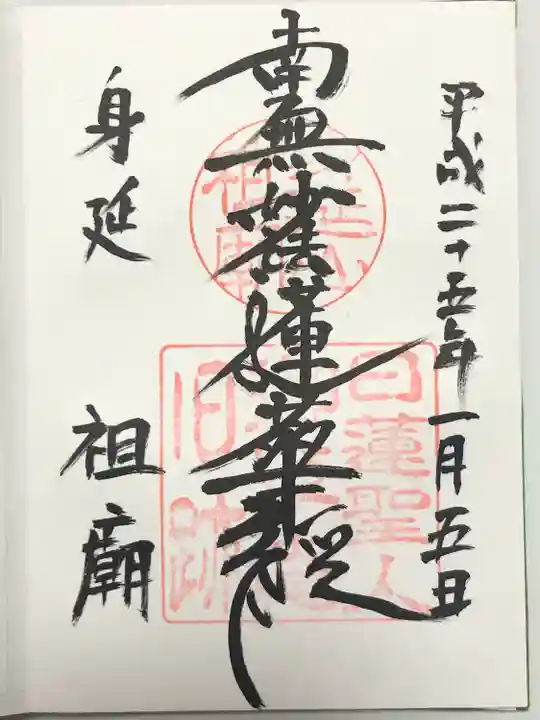 平成二十五年一月五日
南無妙法蓮華経
身延 祖廟
日蓮聖人
旧跡